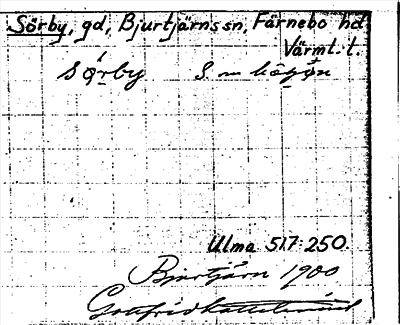 Sörby, gd, Bjurtjärns sn, Färnebo hd
Värml. l.
Sörby S.
Ulma 517:250.
Bjurtjärn 1900
Gottfrid Kallstenius